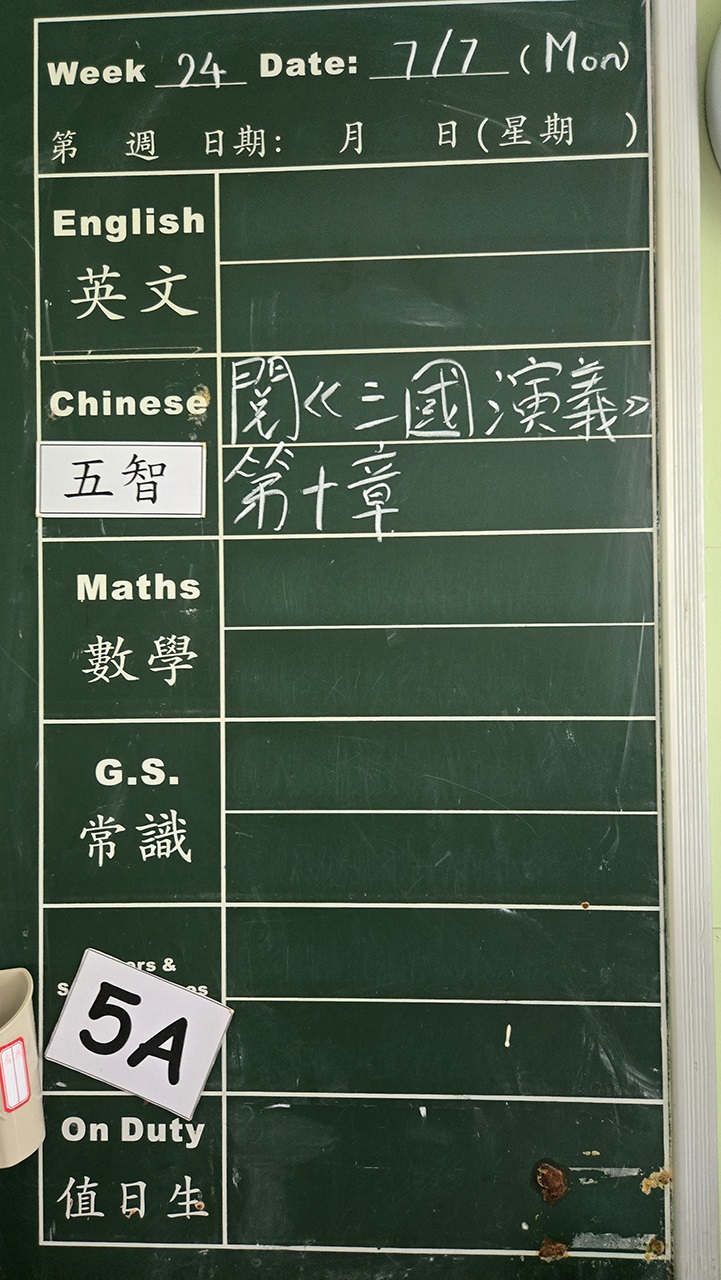 Week 24 Date: 7/7 (Mon)
第 週 日期: 月 日(星期 )
English
英文
Chinese
閱《三國演義》
五智
第十章
Maths
數學
G.S.
常識
ers &
5A
On Duty
值日生